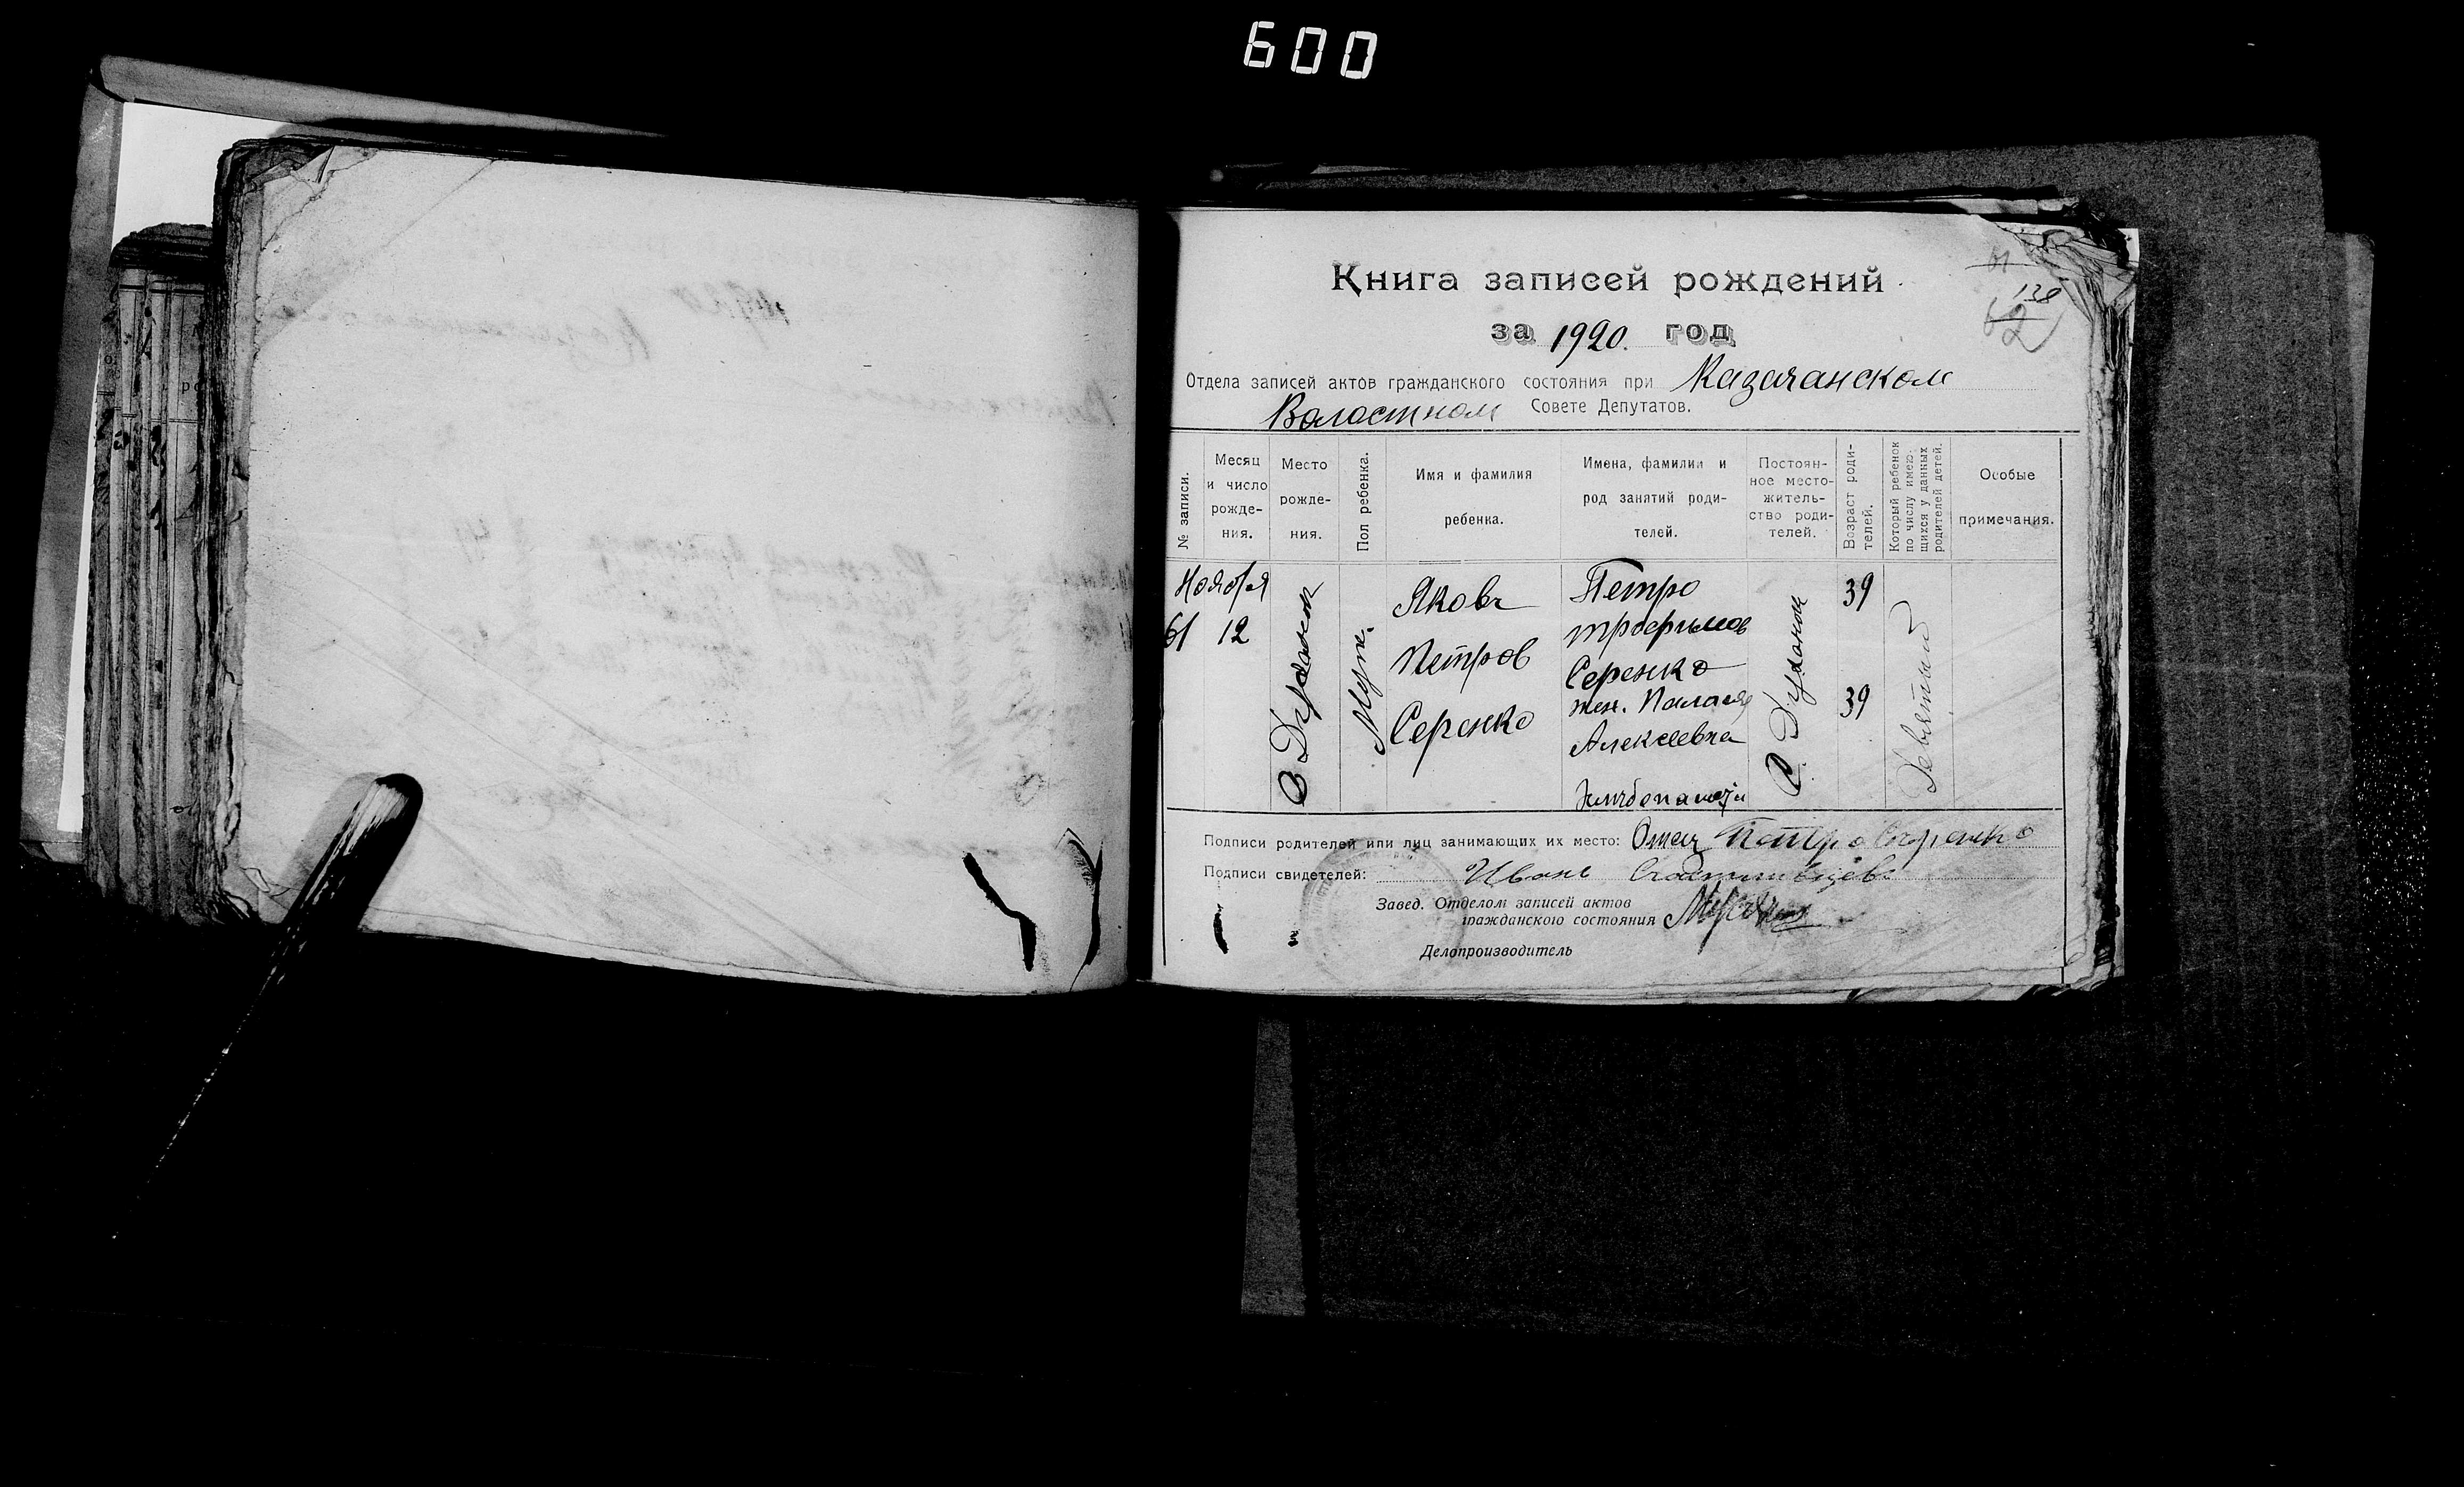 600
138
62
Книга записей рождений
за 1920. год
Отдела записей актов гражданского состояния при Казачанском
Волостном Совете Депутатов.
№ записи.
Месяц и число рожде-ния.
Место рожде-ния.
Пол ребенка.
Имя и фамилия ребенка.
Имена, фамилии и род занятий роди-телей.
Постоян-ное место-житель-ство роди-телей.
Возраст роди-телей.
Который ребенок по числу имею-щихся у данных родителей детей.
Особые примечания.
Ноября
61 12
Муж.
Яковъ
Петров
Серенко
Петро
Трофимов
Серенко
жен. Палагя
Алексеевна
39
39
Девятый
Подписи родителей или лиц занимающих их место: Отец Петро Серенко
Подписи свидетелей: Иванъ
Завед. Отделом записей актов
гражданского состояния
Делопроизводитель